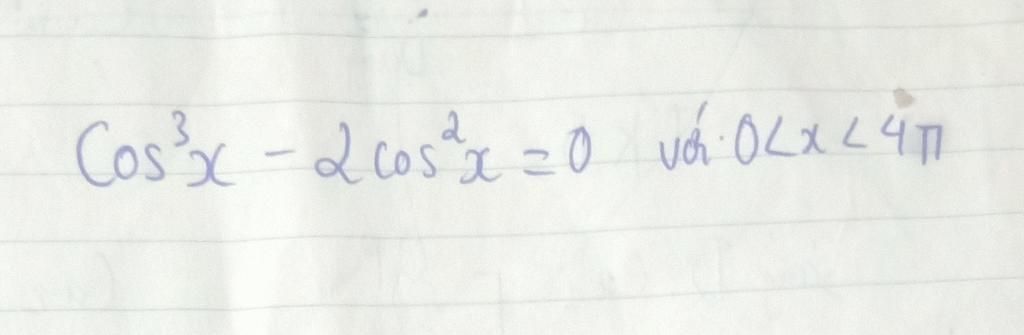 Cos³x - 2cos²x = 0 với 0 < x < 4π